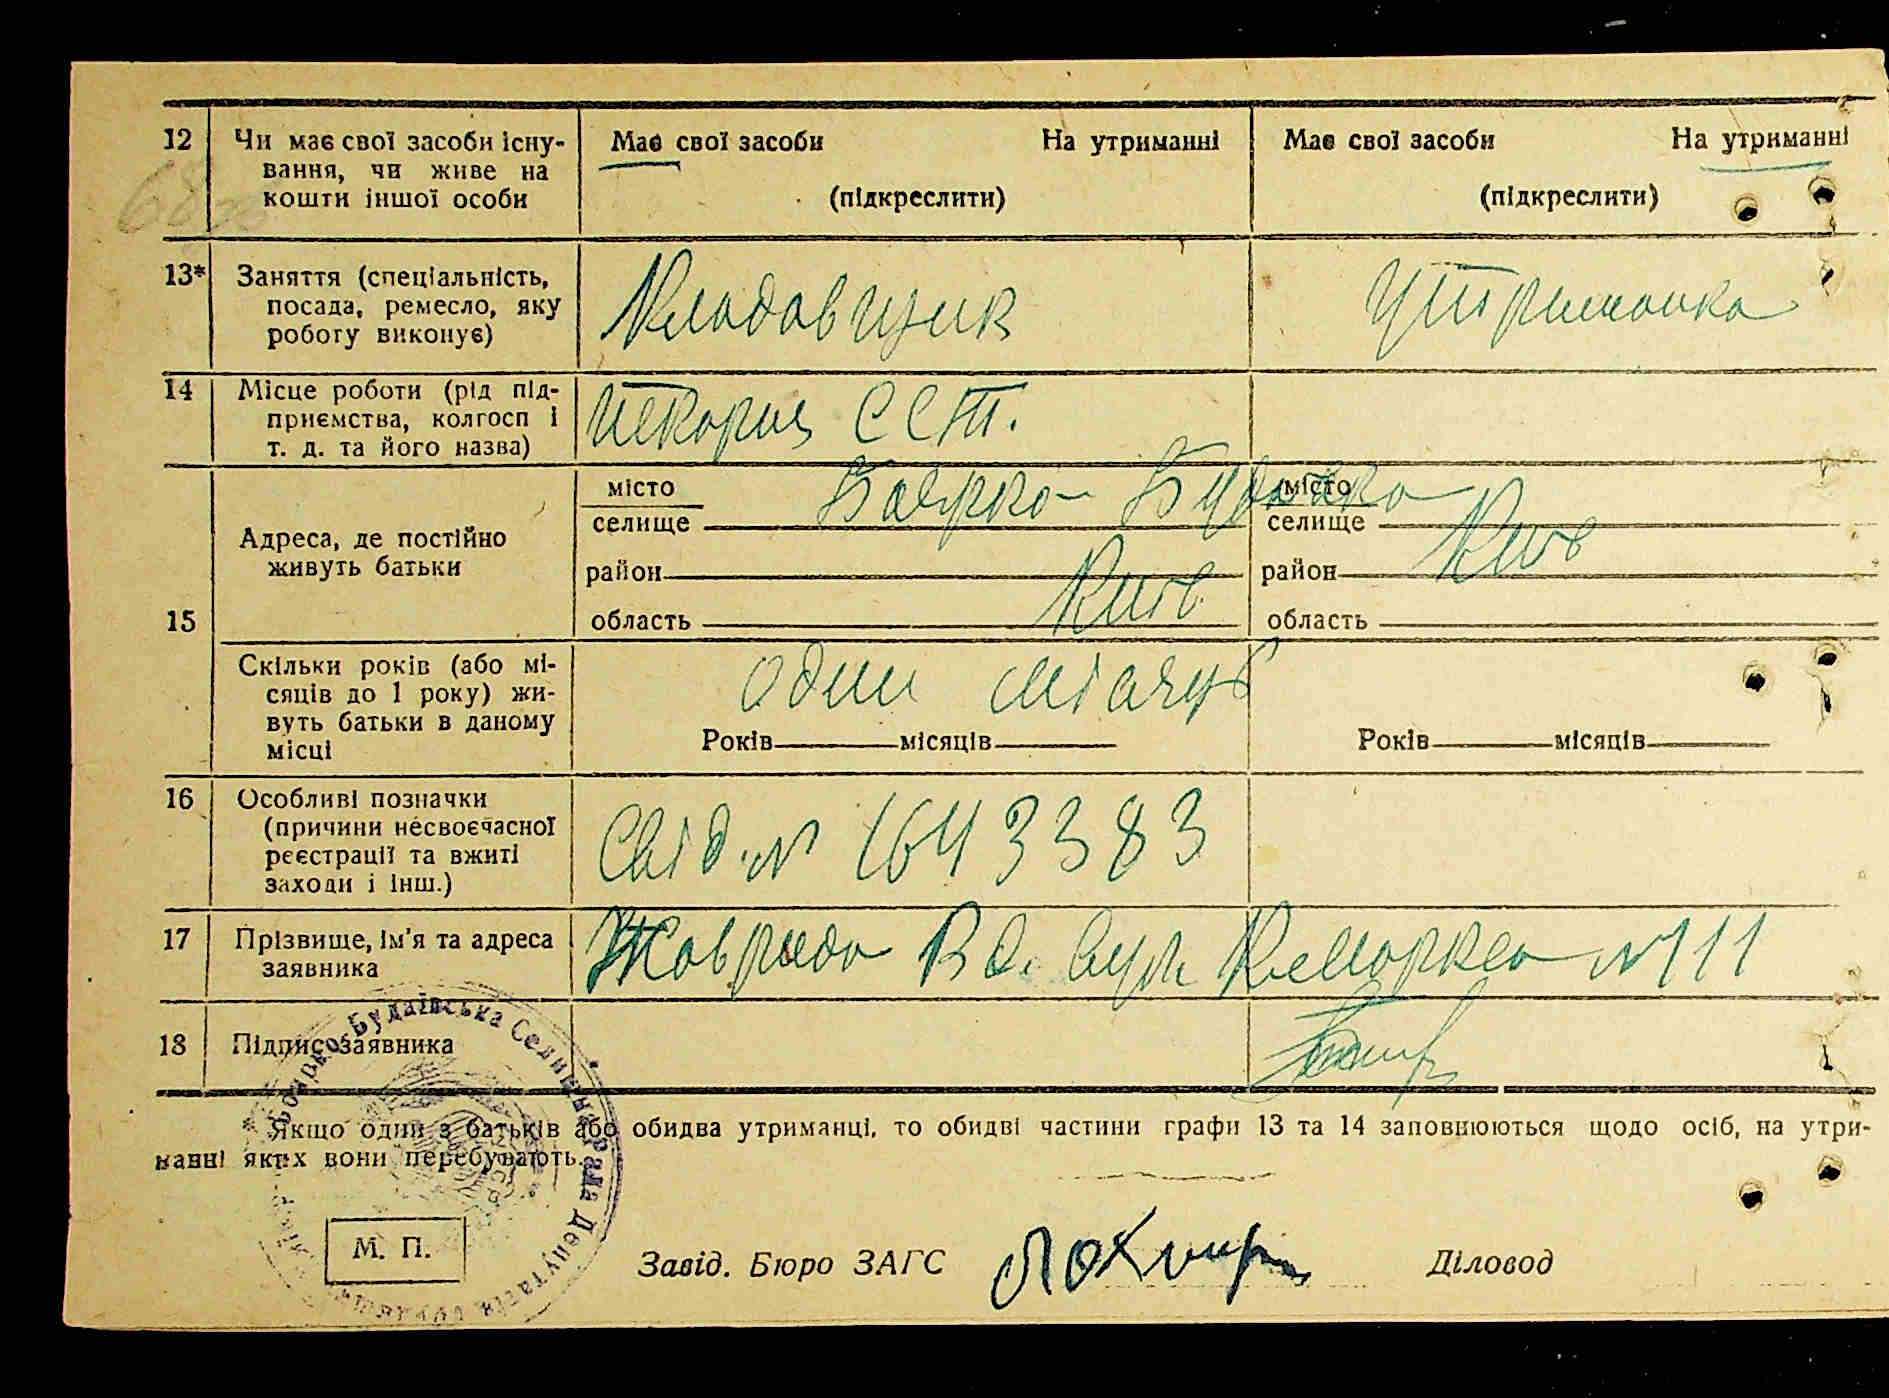 12 Чи має свої засоби існу- Має свої засоби На утриманні Має свої засоби На утриманні
вання, чи живе на
кошти іншої особи (підкреслити) (підкреслити)
13* Заняття (спеціальність, Кладовщик Утриманка
посада, ремесло, яку
роботу виконує)
14 Місце роботи (рід під-
приємства, колгосп і ССТ.
т. д. та його назва)
місто Боярка Будаївка місто
Адреса, де постійно селище селище
живуть батьки район район Київ
15 область Київ область
Скільки років (або мі- один місяць
сяців до 1 року) жи-
вуть батьки в даному Років місяців Років місяців
місці
16 Особливі позначки
(причини несвоєчасної Свід. № 1643383
реєстрації та вжиті
заходи і інш.)
17 Прізвище, ім'я та адреса вул. № 111
заявника
18 Підпис заявника
* Якщо один з батьків або обидва утриманці, то обидві частини графи 13 та 14 заповнюються щодо осіб, на утри-
манні яких вони перебувають.
М. П. Завід. Бюро ЗАГС Діловод
Боярко-Будаївська Селищна Рада Депутатів